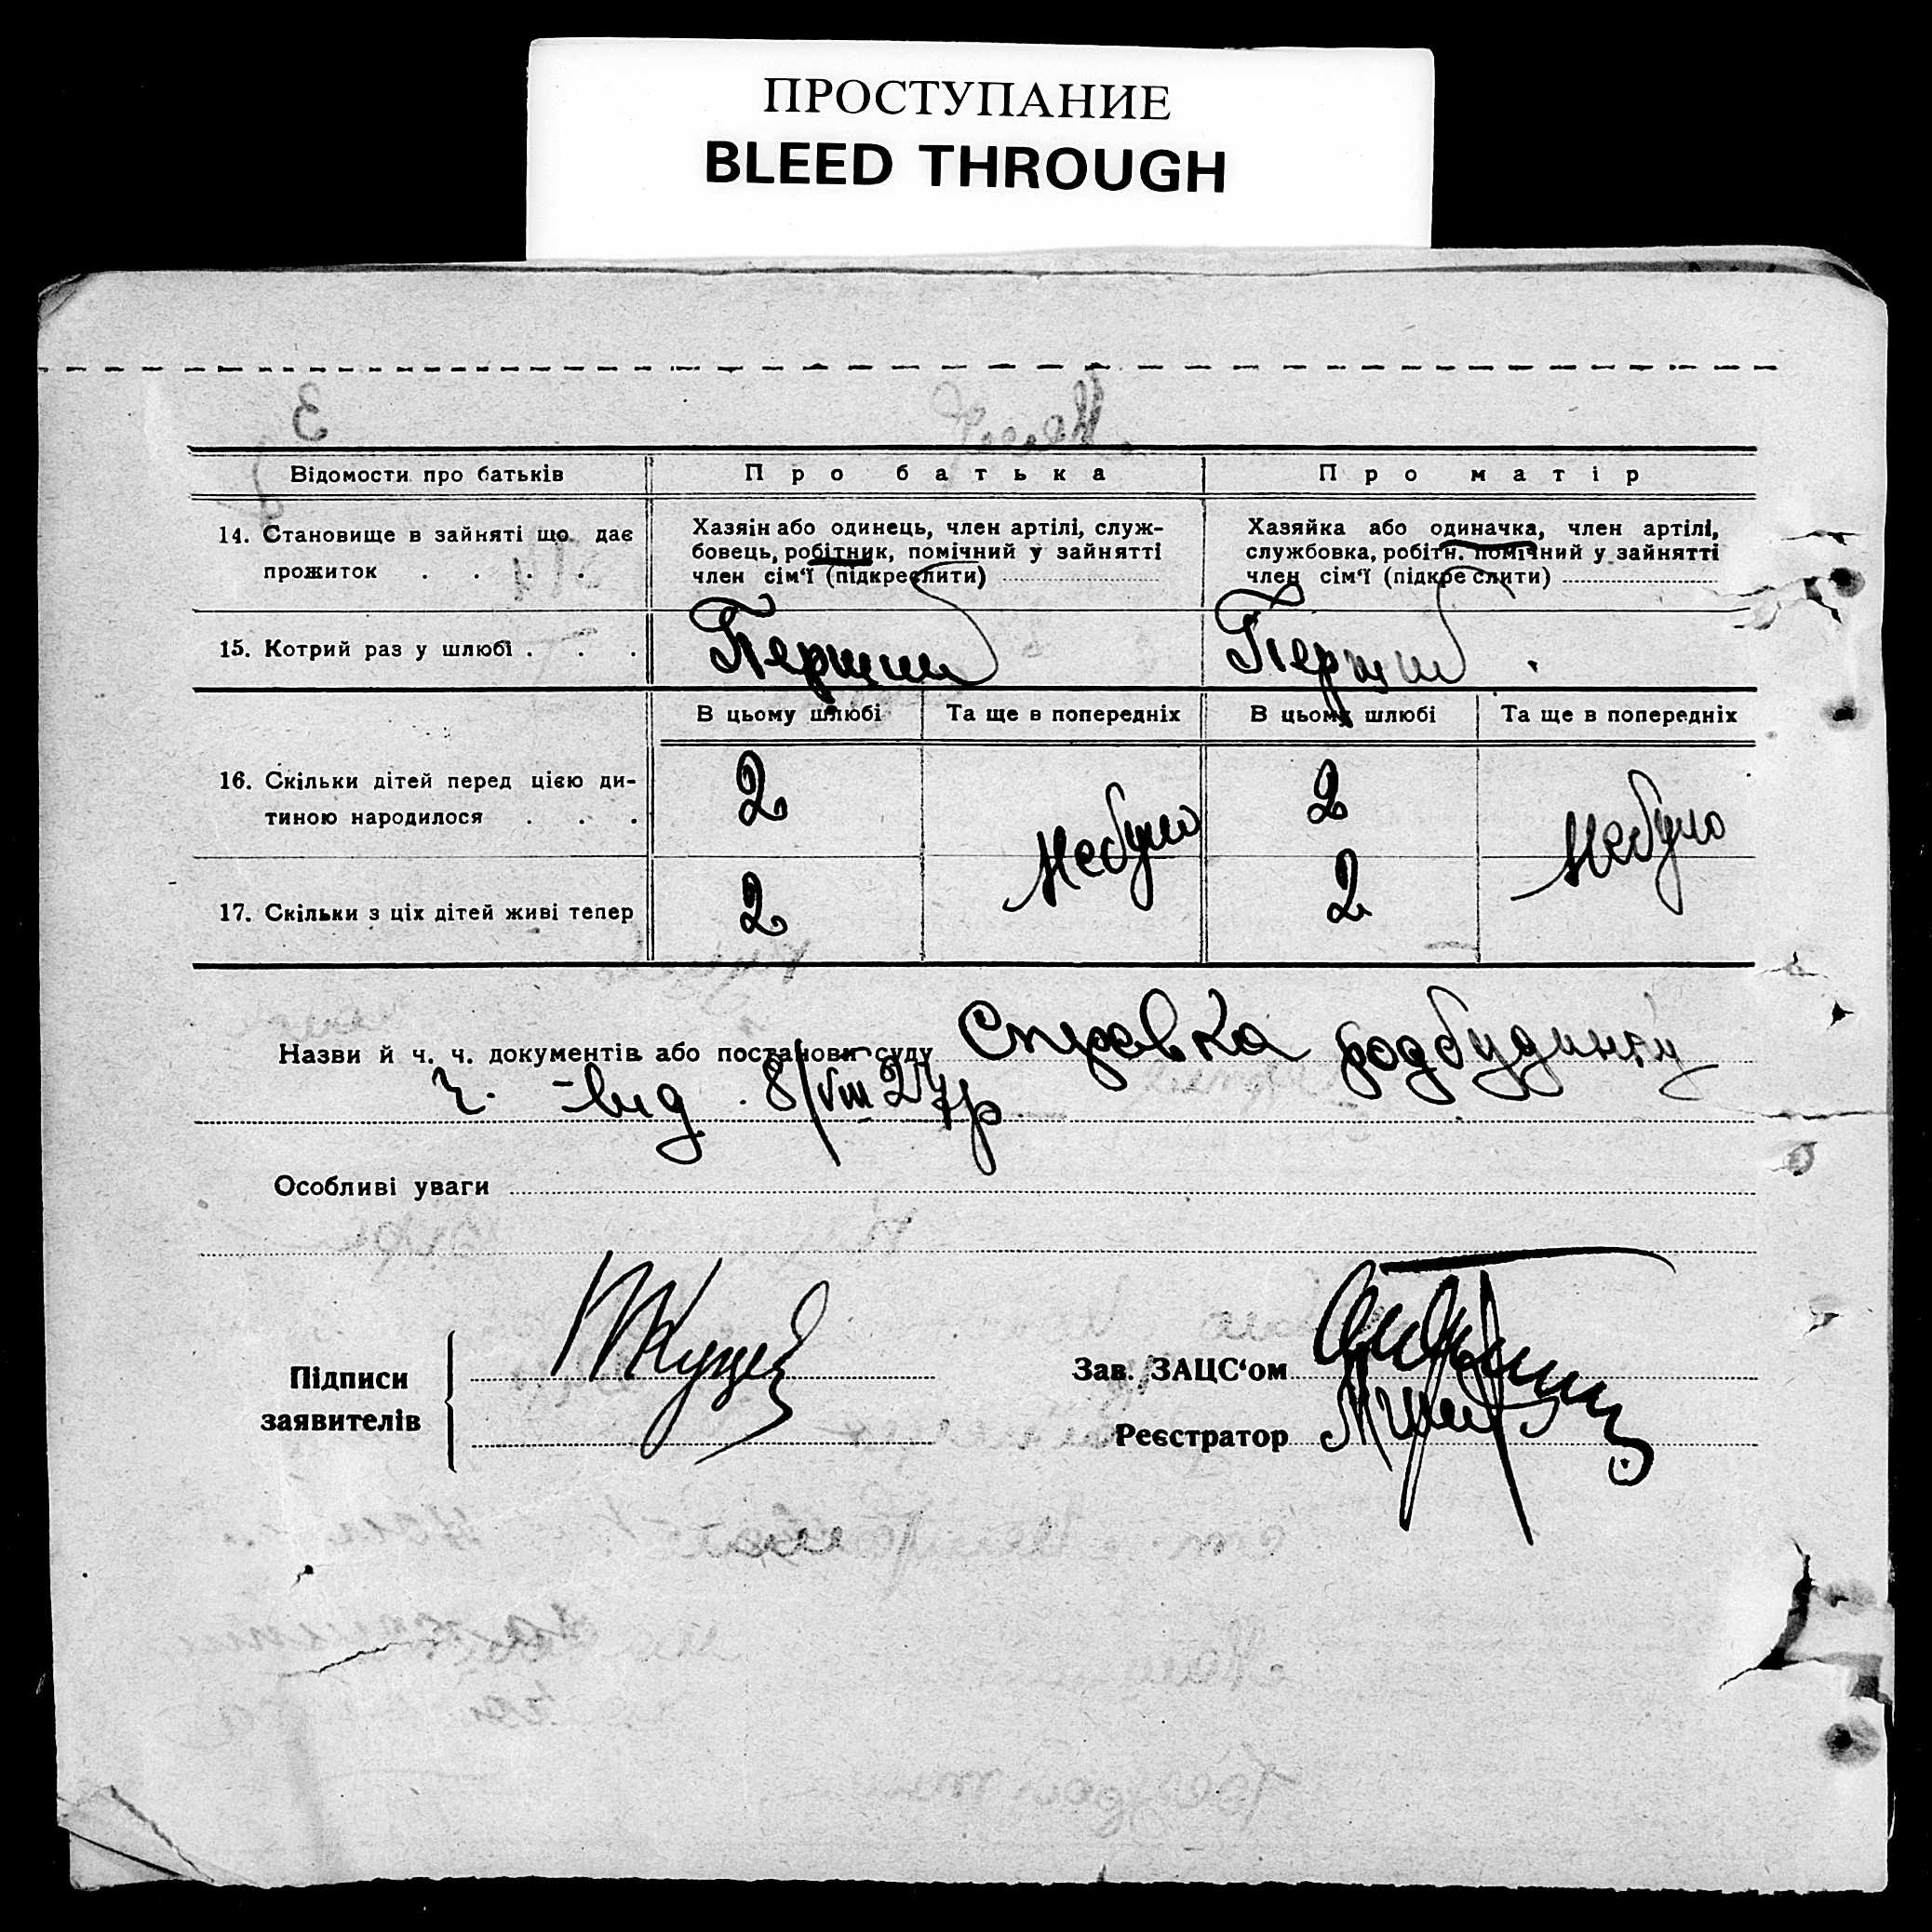 ПРОСТУПАНИЕ
BLEED THROUGH
3
Відомости про батьків
Про батька
Про матір
14. Становище в зайняті що дає прожиток . . . .
Хазяін або одинець, член артілі, служ-
бовець, робітник, помічний у зайнятті
член сім'ї (підкреслити)
Хазяйка або одиначка, член артілі,
службовка, робітн. помічний у зайнятті
член сім'ї (підкреслити)
15. Котрий раз у шлюбі . . .
Перший
Перший
В цьому шлюбі
Та ще в попередніх
В цьому шлюбі
Та ще в попередніх
16. Скільки дітей перед цією ди-
тиною народилося . . .
2
Небуло
2
Небуло
17. Скільки з ціх дітей живі тепер
2
2
Назви й ч. ч. документів або постанови суду Справка родбудинку
ч. - від 8/VIII 27р
Особливі уваги
Підписи
заявителів
Зав. ЗАЦС'ом
Реєстратор